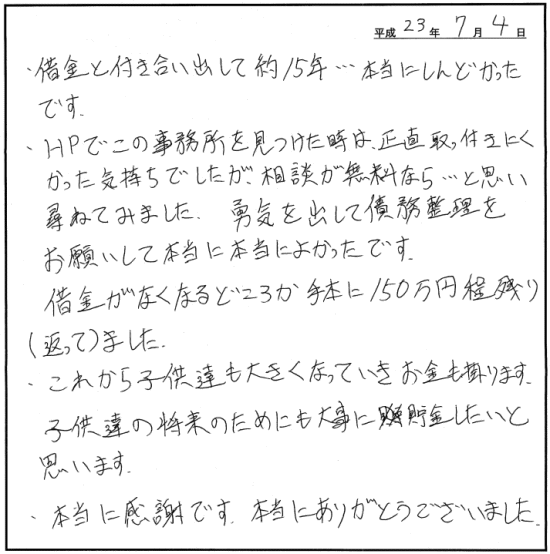 平成 23 年 7 月 4 日
・借金と付き合い出して約15年…本当にしんどかった
です.
・HPでこの事務所を見つけた時は、正直取っ付きにく
かった気持ちでしたが、相談が無料なら…と思い
尋ねてみました. 勇気を出して債務整理を
お願いして本当に本当によかったです.
借金がなくなるどころか手本に150万円程残り
(返って)ました.
・これから子供達も大きくなっていきお金も掛ります.
子供達の将来のためにも大事に貯金したいと
思います.
・本当に感謝です. 本当にありがとうございました.